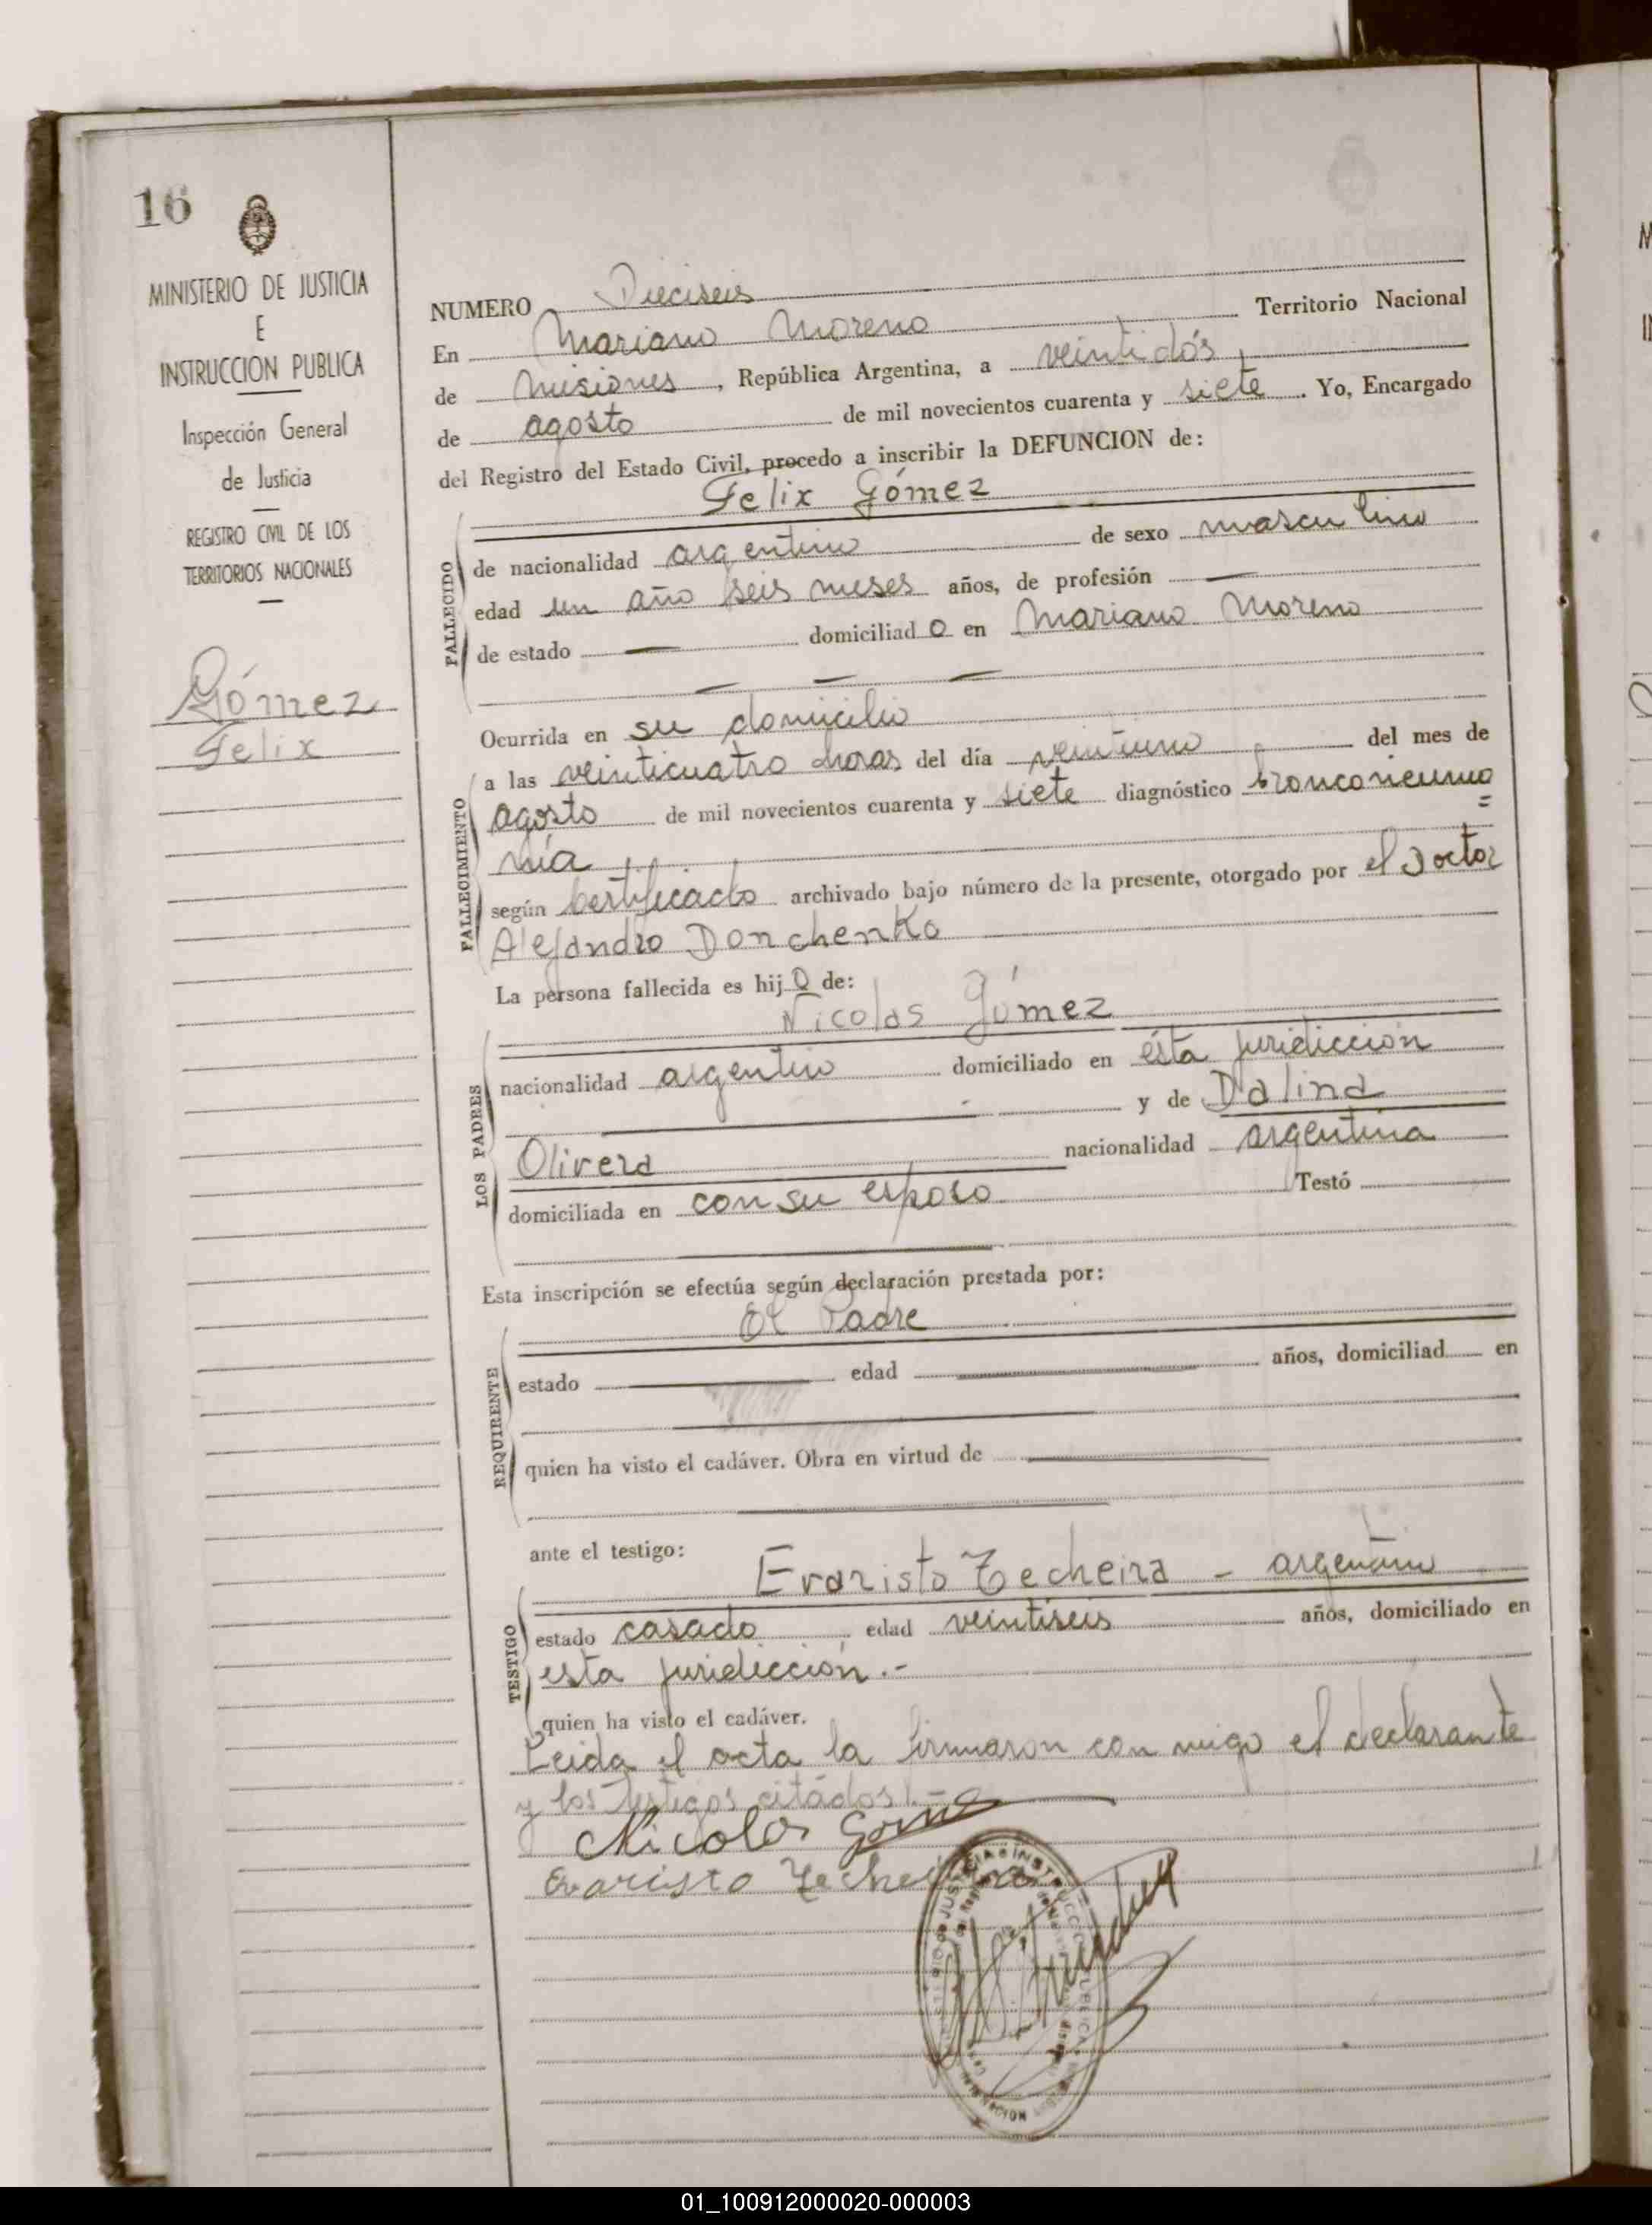 16
MINISTERIO DE JUSTICIA
E
INSTRUCCION PUBLICA
Inspección General
de Justicia
REGISTRO CIVIL DE LOS
TERRITORIOS NACIONALES
Gómez
Felix
NUMERO Dieciseis
En Mariano Moreno Territorio Nacional
de Misiones, República Argentina, a veintidós,
de agosto de mil novecientos cuarenta y siete. Yo, Encargado
del Registro del Estado Civil, procedo a inscribir la DEFUNCION de:
Felix Gómez
FALLECIDO
de nacionalidad argentino de sexo masculino
edad un año seis meses años, de profesión —
de estado — domiciliado en Mariano Moreno
— — —
Ocurrida en su domicilio
FALLECIMIENTO
a las veinticuatro horas del día veintiuno del mes de
agosto de mil novecientos cuarenta y siete diagnóstico bronconeumo=
nía
según certificado archivado bajo número de la presente, otorgado por el Doctor
Alejandro Donchenko
La persona fallecida es hijo de:
Nicolas Gómez
LOS PADRES
nacionalidad argentino domiciliado en ésta juridicción
y de Dalina
Olivera nacionalidad argentina
domiciliada en con su esposo Testó
Esta inscripción se efectúa según declaración prestada por:
El Padre
REQUIRENTE
estado — edad — años, domiciliad en
quien ha visto el cadáver. Obra en virtud de —
ante el testigo:
Evaristo Techeira - argentino
TESTIGO
estado casado edad veintiseis años, domiciliado en
esta juridicción.-
quien ha visto el cadáver.
Leida el acta la firmaron con migo el declarante
y los testigos citados.-
Nicolas Gomez
Evaristo Techeira
01_100912000020-000003